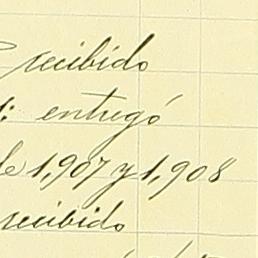 recibido
entregó
de 1,907 y 1,908
recibido